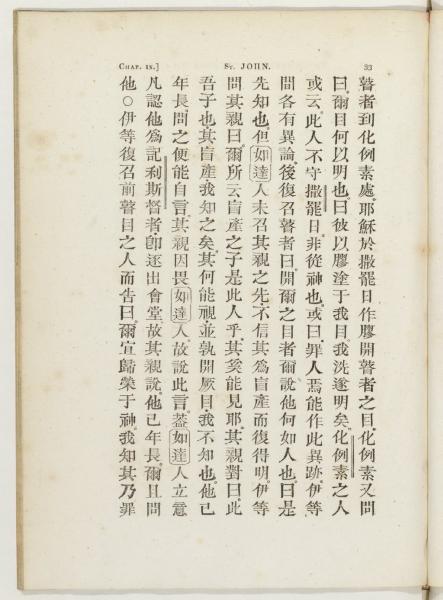 CHAP. IX.] ST. JOHN. 33
瞽者到化例素處。耶穌於撒罷日作膠開瞽者之目。化例素又問
曰。爾目何以明也。曰彼以膠塗于我目我洗遂明矣。化例素之人
或云。此人不守撒罷日。非從神也。或曰。罪人焉能作此異跡。伊等
間各有異論。後復召瞽者曰。開爾之目者爾說他何如人也。曰是
先知也。但如達人未召其親之先。不信其為盲產而復得明。伊等
問其親曰。爾所云盲產之子。是此人乎。其奚能見耶。其親對曰。此
吾子也。其盲產。我知之矣。其何能視。並孰開厥目。我不知也。他已
年長。問之便能自言。其親因畏如達人。故說此言。蓋如達人立意
凡認他為記利斯督者。卽逐出會堂故其親說。他已年長。爾且問
他○伊等復召前瞽目之人而告曰。爾宜歸榮于神。我知其乃罪